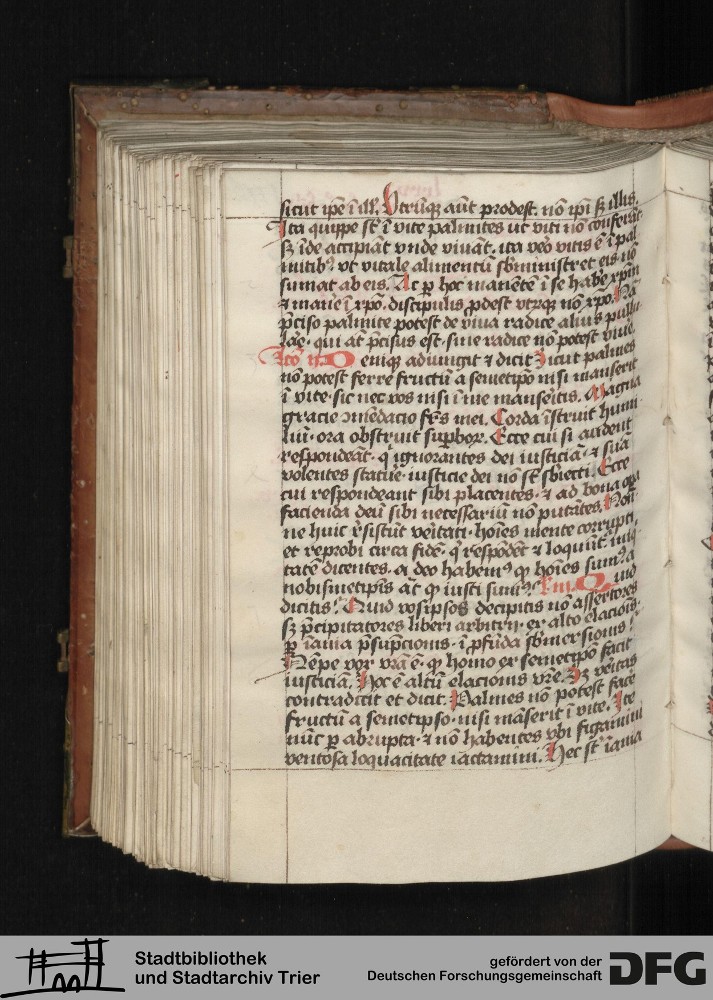 sicut ip̄e ī ill̄. Vtrūq; aūt prodest. nō ip̄i sꝫ illis.
Ita quippe st̄ ī vite palmites ut viti nō conferāt
sꝫ īde accipiāt vnde viuāt. ita v̄o vitis ē ī pal
mitibꝰ vt vitale alimentū sb̄ministret eis nō
sumat ab eis. Ac ꝑ hoc manētē ī se habē xp̄m
⁊ manē ī xp̄o. discipulis ꝓdest vtrūq; nō xp̄o. Nā
p̄ciso palmite potest de viua radice alius pullu
lāe. qui at̄ p̄cisus est. sine radice nō potest viue.
enīq; adiungit ⁊ dicit Sicut palmes
nō potest ferre fructū a semetip̄o nisi manserit
ī vite. sic nec vos nisi ī me manseritis. Magna
gracie ɔmēdacio frs̄ mei. Corda īstruit humi
liū. ora obstruit suꝑboꝝ. Ecce cui si audent
respondeāt. q̄ ignorantes dei iusticiā. ⁊ suā
volentes statūe. iusticie dei nō st̄ sb̄iecti. Ecce
cui respondeant sibi placentes. ⁊ ad bona oꝑa
facienda deū sibi necessariū nō putātes. Non
ne huic r̄sistūt veritati. hoīes mente corrupti.
et reprobi circa fidē. q̄ respōdēt ⁊ loquūt̄ iniq
tatē dicentes. a deo habemꝰ qꝫ hoīes sumꝰ. a
nobismetip̄is āt qꝫ iusti sumꝰ. Quid
dicitis. Quid vosip̄sos decipitis nō assertores
sꝫ p̄cipitatores liberi arbitrii. ex alto elacionis
ꝑ īania p̄sūpcionis. ī ꝓfūda sb̄mersionis.
Nēpe vox vr̄a ē. qꝫ homo ex semetip̄o facit
iusticiā. Hoc ē altū elacionis vr̄e. Sꝫ veritas
contradicit et dicit. Palmes nō potest facē
fructū a semetipso. nisi māserit ī vite. Ite
nūc ꝑ abrupta. ⁊ nō habentes vbi figamini
ventosa loquacitate iactamini. Hec st̄ īania
Stadtbibliothek
und Stadtarchiv Trier
gefördert von der
Deutschen Forschungsgemeinschaft
DFG